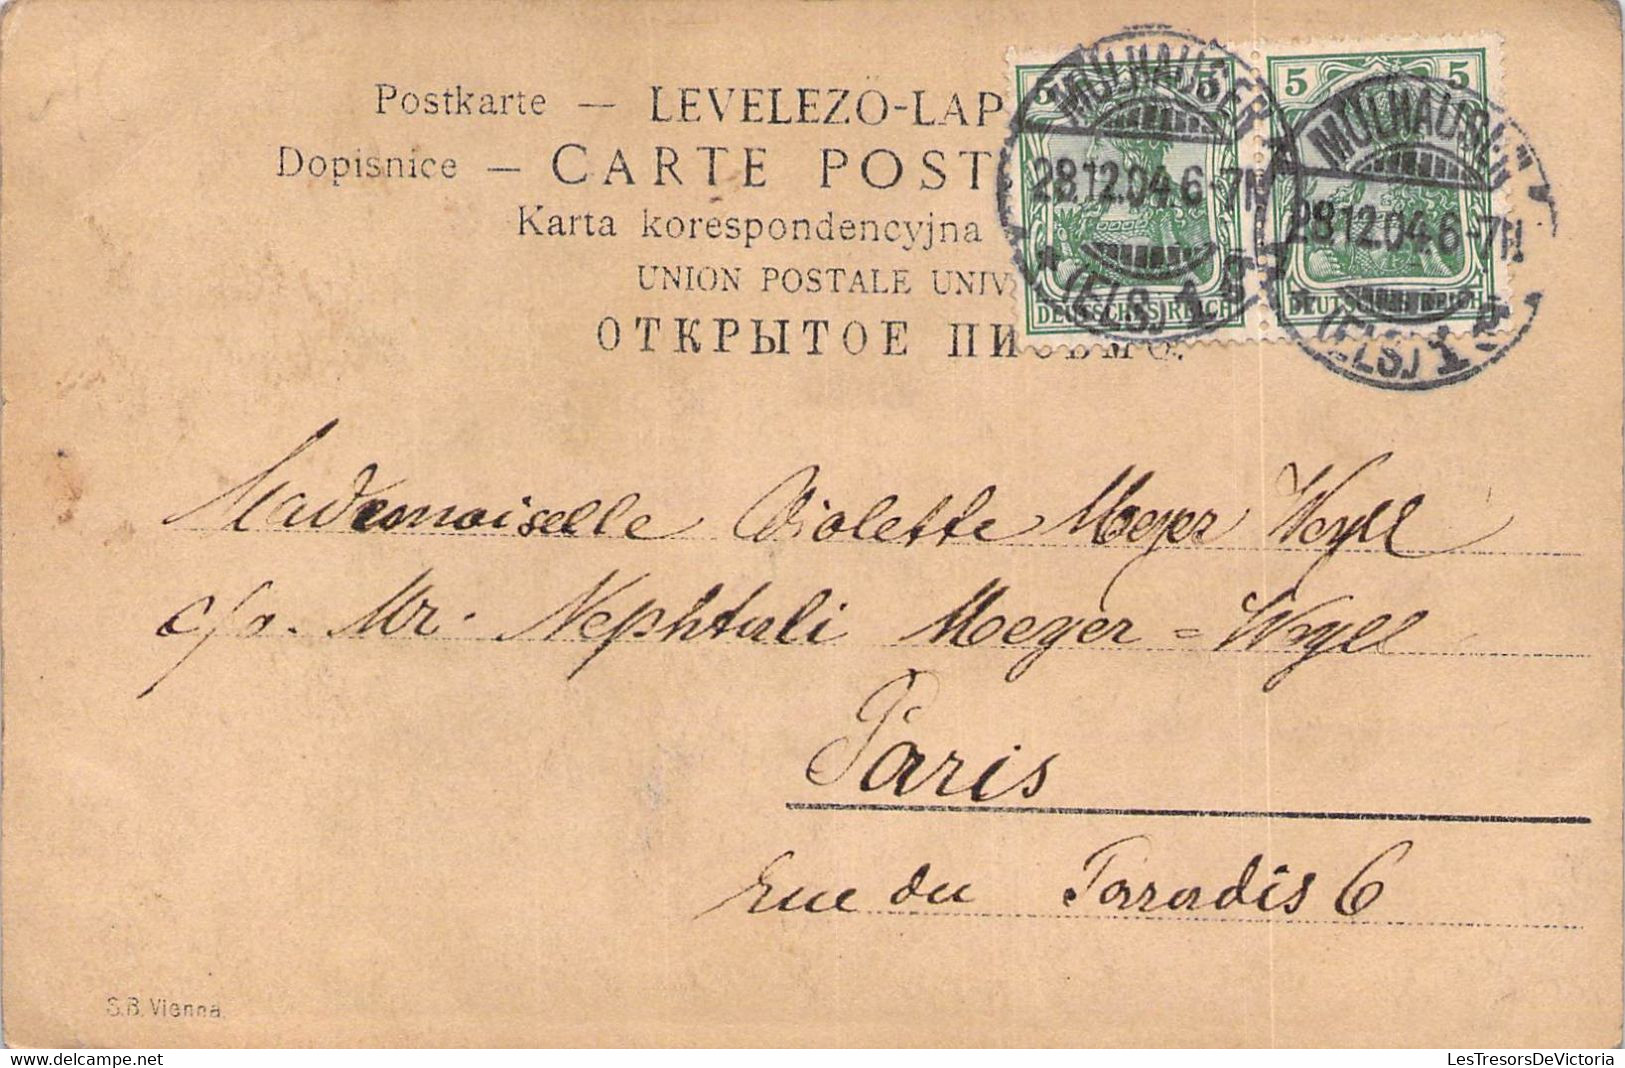 Postkarte — LEVELEZO-LAP
Dopisnice — CARTE POST
Karta korespondencyjna
UNION POSTALE UNIV
ОТКРЫТОЕ ПИСЬМО.
5 5
MÜLHAUSEN
28.12.04.6-7N
(ELS) 1
DEUTSCHES REICH
5 5
MÜLHAUSEN
28.12.04.6-7N
(ELS) 1
DEUTSCHES REICH
Mademoiselle Violette Meyer Weyll
c/o. Mr. Nephtali Meyer=Weyll
Paris
rue du Paradis 6
S.B. Vienna
LesTresorsDeVictoria